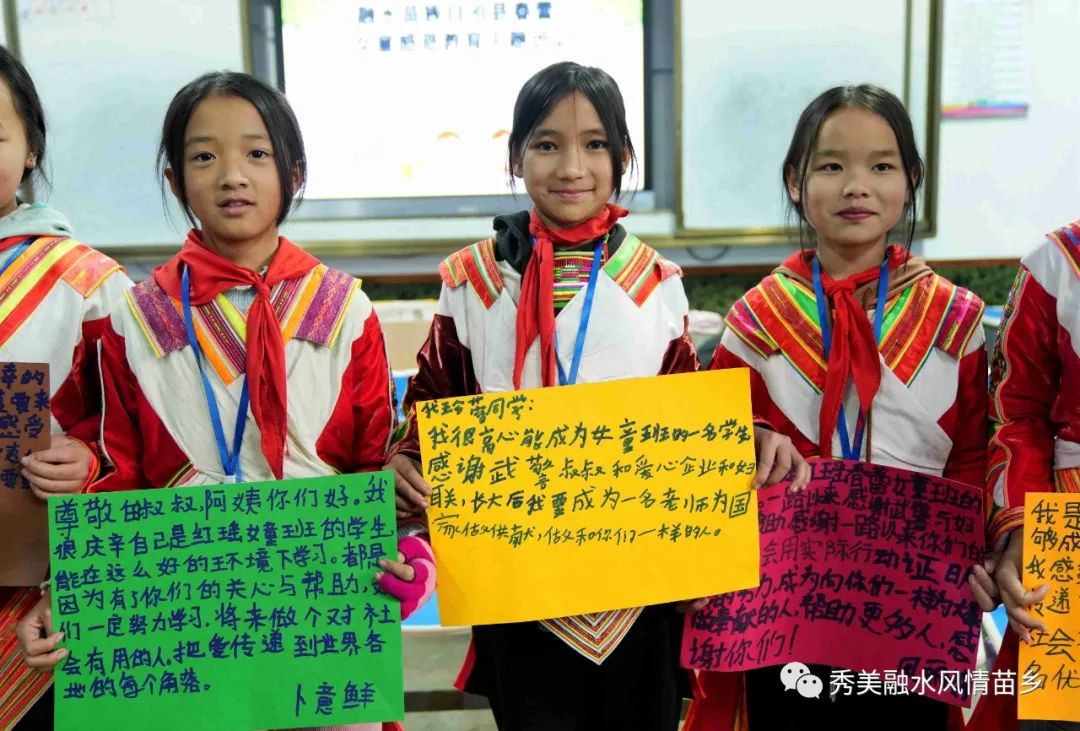 融水苗族自治县春蕾
女童感恩教育主题活动
幸的
爱来
感受
尊敬的叔叔，阿姨你们好。我
很庆辛自己是红瑶女童班的学生
能在这么好的环境下学习。都是
因为有了你们的关心与帮助，
们一定努力学习，将来做个对社
会有用的人，把爱传递到世界各
地的每个角落。
卜意鲜
同学：
我很高心能成为女童班的一名学生
感谢武警叔叔和爱心企业和妇
联，长大后我要成为一名老师为国
家做贡献，做和你们一样的人。
红瑶春蕾女童班的
一路以来感谢武警与妇
助感谢一路以来你们的
会用实际行动证明
努力，成为向你们一样的大
做奉献的人，帮助更多人，感
谢你们！
我是
够成
我感
传递
社会
名优
秀美融水风情苗乡